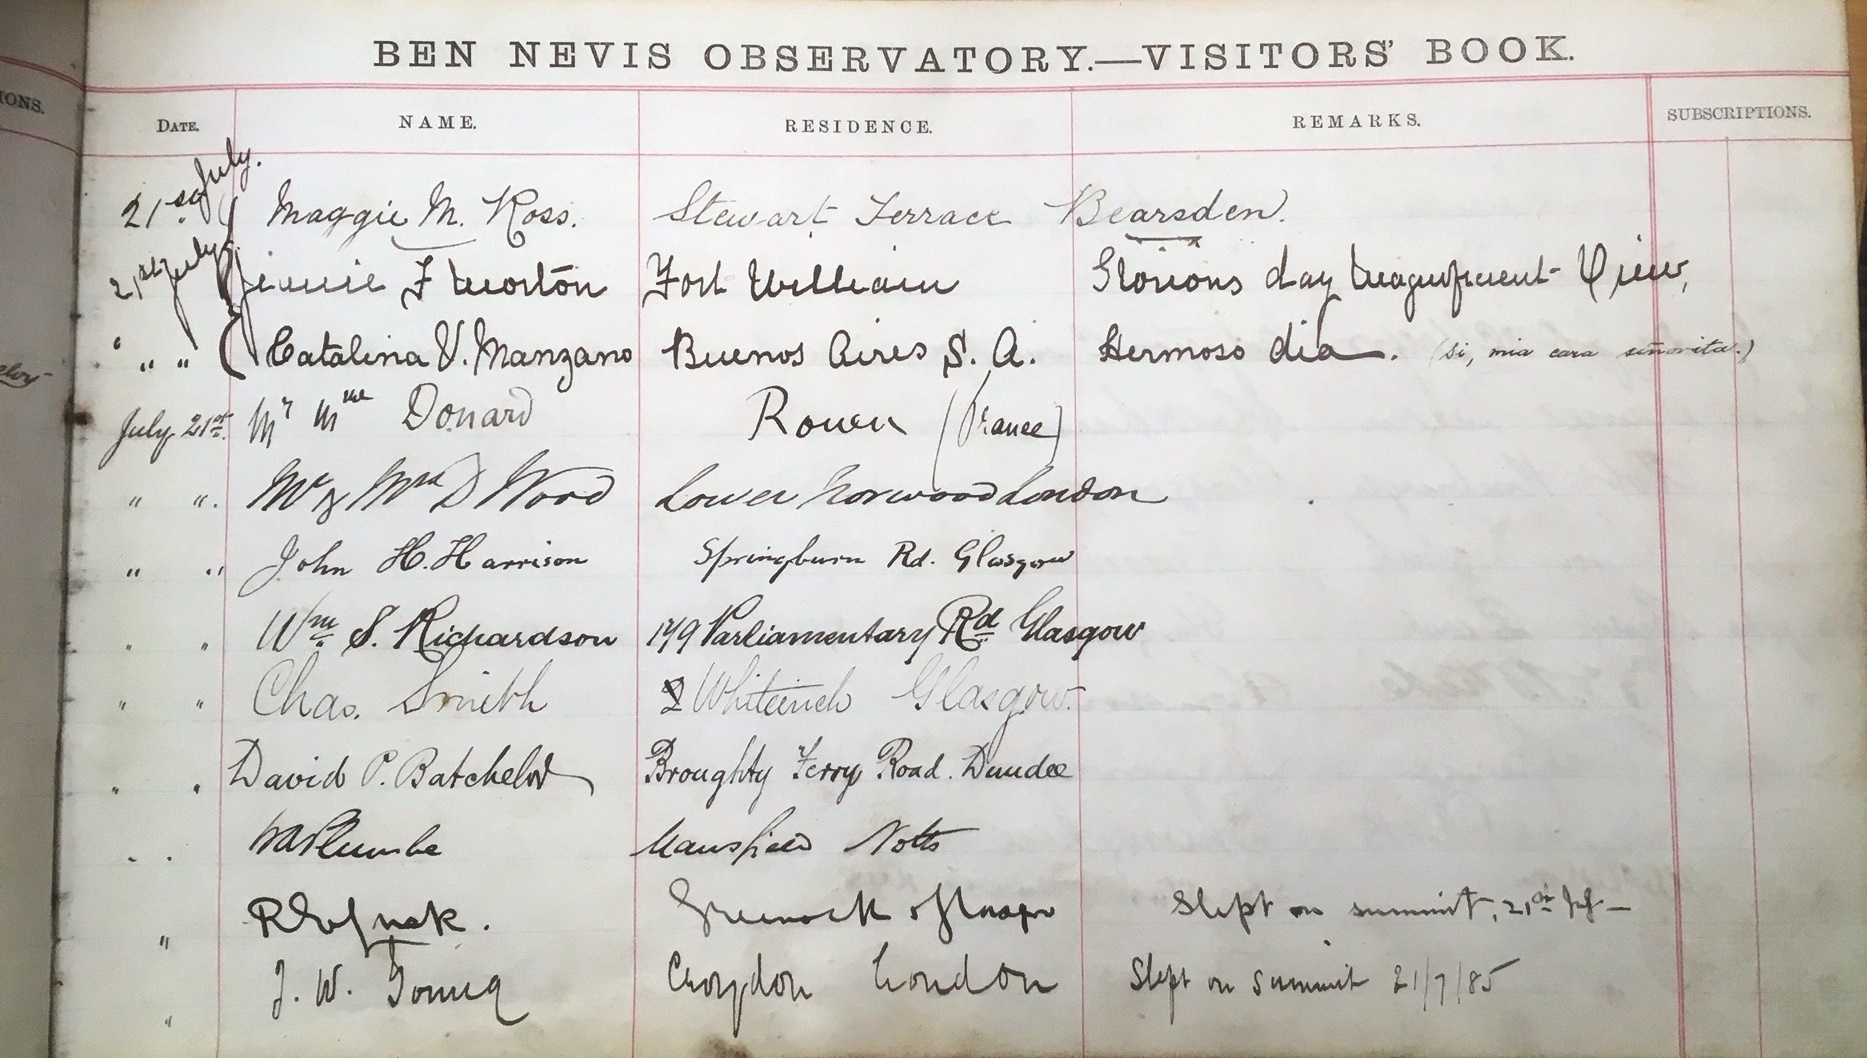 BEN NEVIS OBSERVATORY.—VISITORS' BOOK.
IONS.
DATE. NAME. RESIDENCE. REMARKS. SUBSCRIPTIONS.
21st July. Maggie M. Ross. Stewart Terrace Bearsden.
21st July Jeannie F Morton Fort William Glorious day Magnificent View,
" " " Catalina V. Manzano Buenos Aires S. A. Hermoso dia. (si, mia cara señorita.)
July 21st. Mr Mme Donard Rouen (France)
" ". Mr & Mrs D Wood Lower Norwood London
" " John H. Harrison Springburn Rd. Glasgow
" " Wm S. Richardson 179 Parliamentary Rd Glasgow
" " Chas. Smith Whiteinch Glasgow.
" " David P. Batchelor Broughty Ferry Road. Dundee
" " Plumbe Mansfield Notts
" Greenock Slept on summit, 21st
" J. W. Young Croydon London Slept on summit 21/7/85